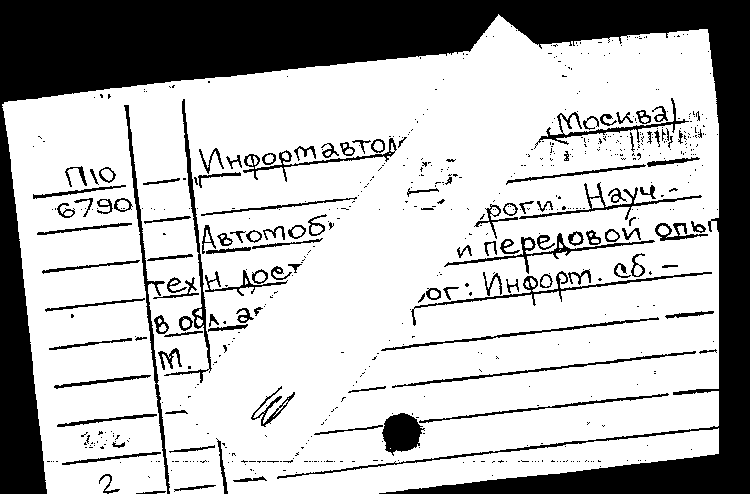 П10
6790
Информавтод Москва)
Автомоб роги: Науч.-
техн. дост и передовой опыт
в обл. ав ог: Информ. сб. –
М.
2